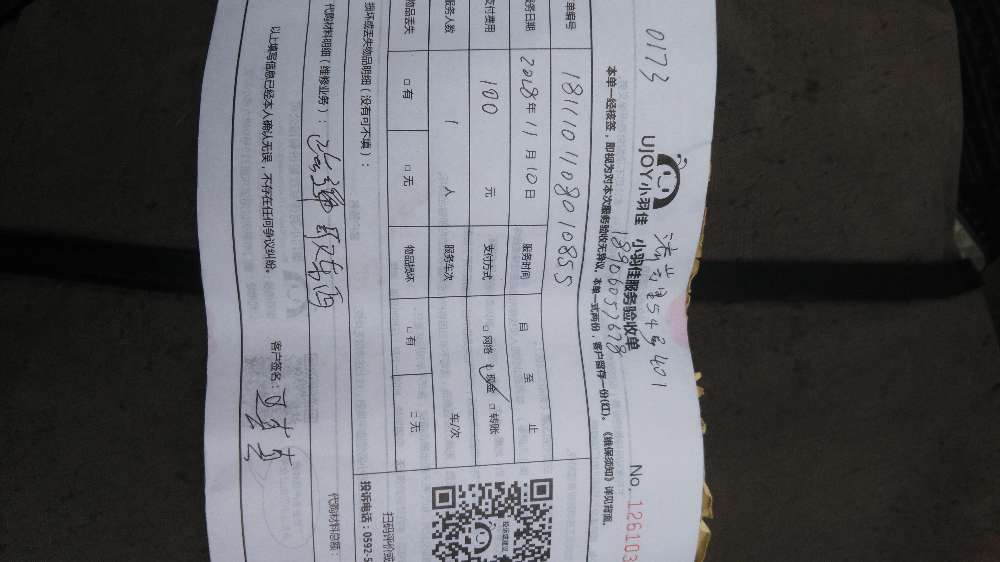 0173
UJOY小羽佳
小羽佳服务验收单
No. 126103
54号401
18906057678
本单一经核签，即视为对本次服务验收无异议，本单一式两份，客户留存一份(红)。《维保须知》详见背面。
单编号 1811101108010855
务日期 2018年11月10日 服务时间 自 至 止
支付费用 100 元 支付方式 □网络 ☑现金 □转账
服务人数 1 人 服务车次 车/次
物品丢失 □有 □无 物品损坏 □有 □无
损坏或丢失物品明细（没有可不填）：
扫码评价或
投诉电话：0592-5
代购材料明细（维修业务）：
代购材料总额：
以上填写信息已经本人确认无误，不存在任何争议纠纷。 客户签名：